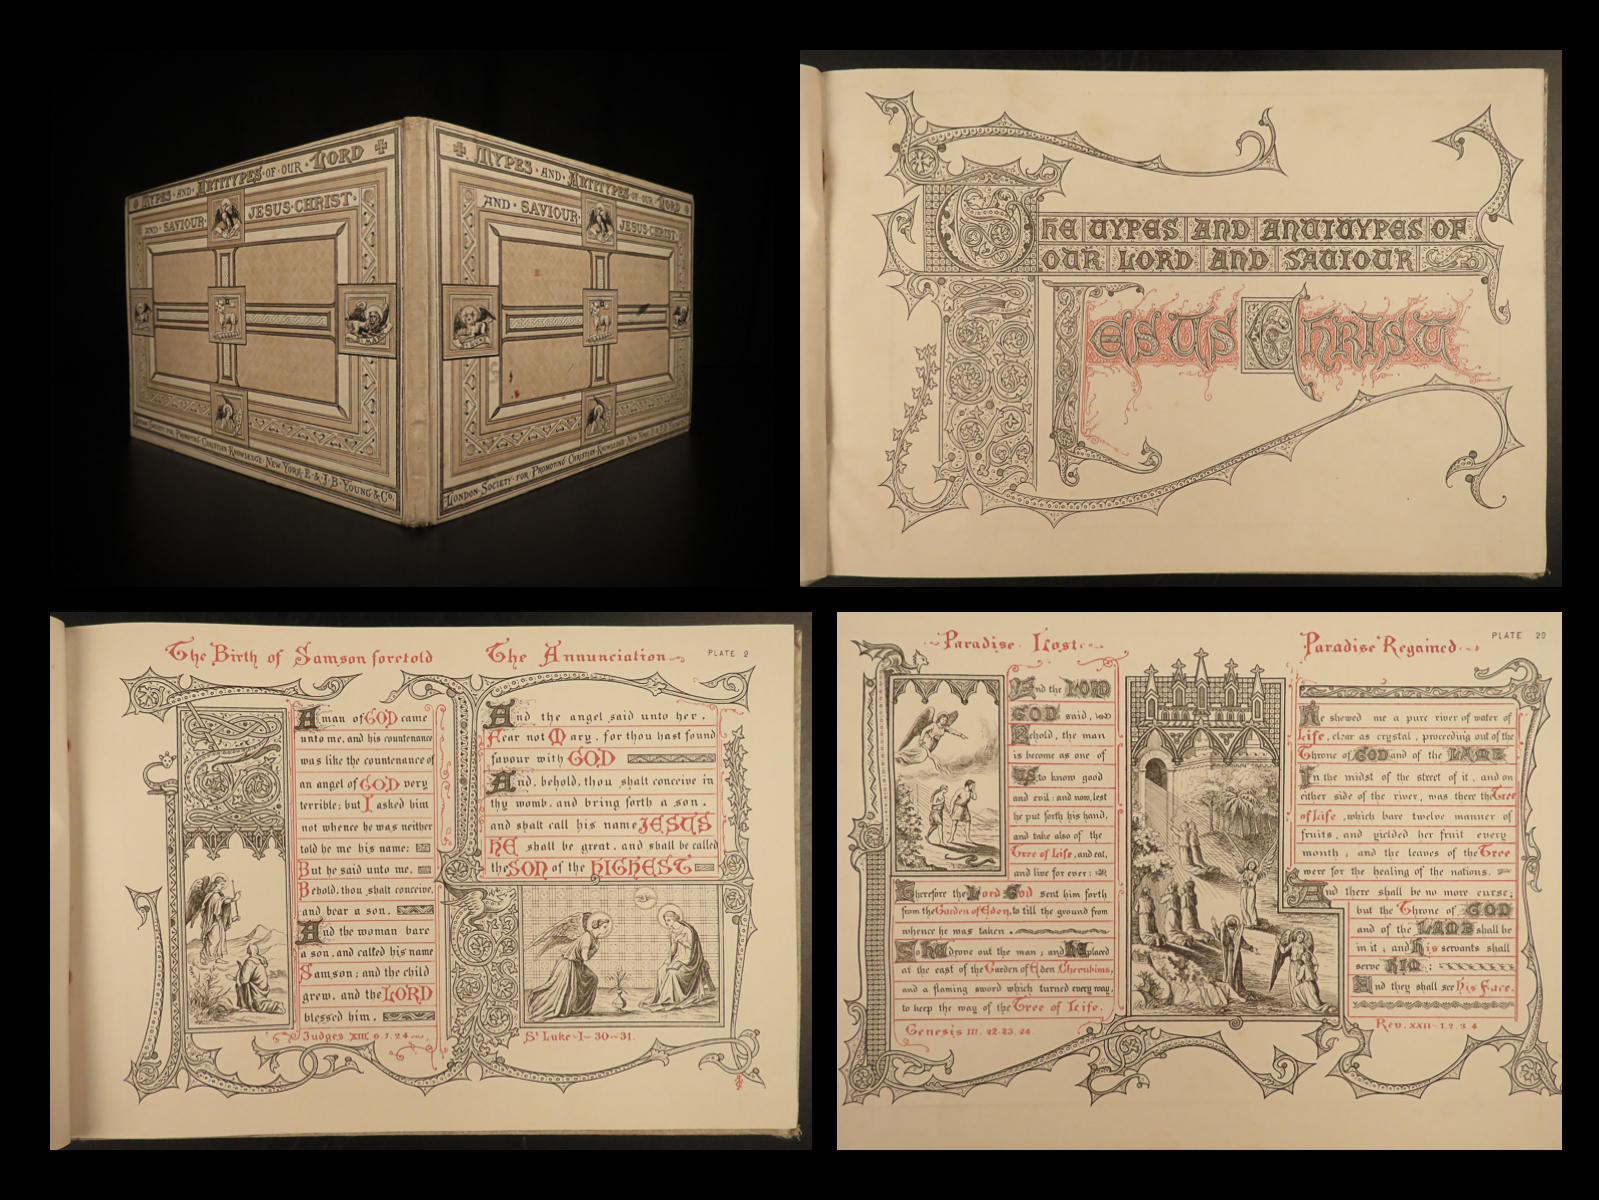 TYPES · AND · ANTITYPES · OF · OUR · LORD
AND · SAVIOUR · JESUS · CHRIST ·
LONDON SOCIETY FOR PROMOTING CHRISTIAN KNOWLEDGE · NEW YORK · E · & · J · B · YOUNG & Co.
TYPES · AND · ANTITYPES OF OUR LORD
AND · SAVIOUR · JESUS · CHRIST ·
LONDON · SOCIETY · FOR · PROMOTING · CHRISTIAN KNOWLEDGE NEW YORK
THE TYPES AND ANTITYPES OF
OUR LORD AND SAVIOUR
JESUS CHRIST
The Birth of Samson foretold
A man of GOD came
unto me, and his countenance
was like the countenance of
an angel of GOD very
terrible; but I asked him
not whence he was neither
told he me his name:
But he said unto me,
Behold, thou shalt conceive,
and bear a son,
And the woman bare
a son, and called his name
Samson; and the child
grew, and the LORD
blessed him.
Judges XIII 6 7. 24
The Annunciation
PLATE 2
And the angel said unto her,
Fear not Mary, for thou hast found
favour with GOD
And, behold, thou shalt conceive in
thy womb, and bring forth a son,
and shalt call his name JESUS
HE shall be great, and shall be called
the SON of the HIGHEST
St Luke - I - 30 - 31.
Paradise Lost
And the LORD
GOD said,
Behold, the man
is become as one of
US to know good
and evil: and now, lest
he put forth his hand,
and take also of the
Tree of Life, and eat,
and live for ever:
Therefore the Lord God sent him forth
from the Garden of Eden, to till the ground from
whence he was taken.
So HE drove out the man; and HE placed
at the east of the Garden of Eden Cherubims,
and a flaming sword which turned every way,
to keep the way of the Tree of Life.
Genesis III. 22-23. 24
Paradise Regained
PLATE 29
He shewed me a pure river of water of
Life, clear as crystal, proceeding out of the
Throne of GOD and of the LAMB.
In the midst of the street of it, and on
either side of the river, was there the Tree
of Life, which bare twelve manner of
fruits, and yielded her fruit every
month; and the leaves of the Tree
were for the healing of the nations.
And there shall be no more curse;
but the Throne of GOD
and of the LAMB shall be
in it; and His servants shall
serve HIM;
And they shall see His Face.
Rev. XXII - 1. 2. 3 4